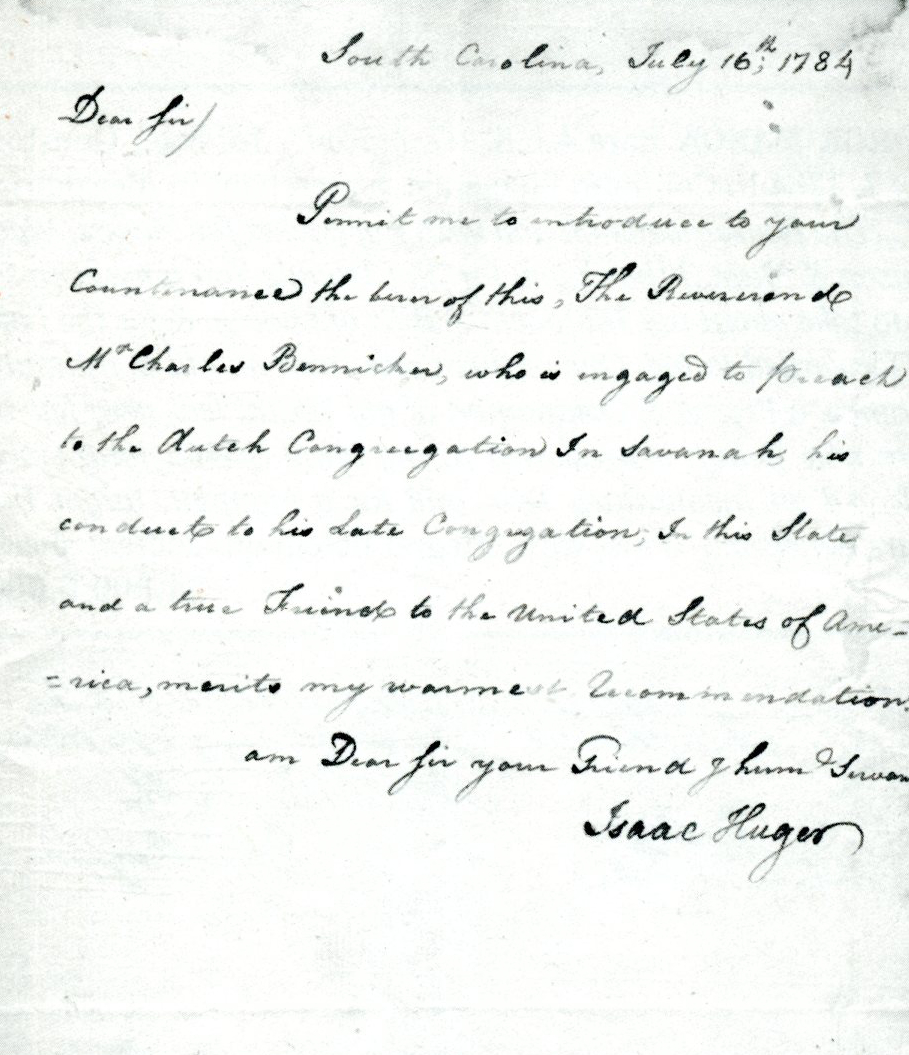 South Carolina, July 16th; 1784
Dear Sir)
Permit me to introduce to your
Countenance the berer of this, The Reverend
Mr Charles Bennicker, who is engaged to preach
to the dutch Congregation In Savanah, his
conduct to his Late Congregation; In this State
and a true Friend to the United States of Ame=
=rica, merits my warmest Recommendation.
am Dear Sir your Friend & humd Servan
Isaac Huger